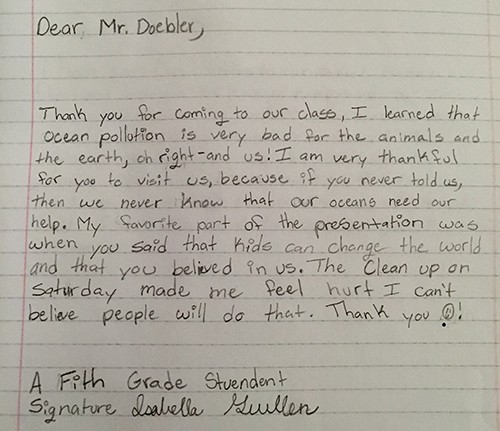 Dear Mr. Doebler,
Thank you for coming to our class, I learned that
ocean pollotion is very bad for the animals and
the earth, oh right-and us! I am very thankful
for you to visit us, because if you never told us,
then we never know that our oceans need our
help. My favorite part of the presentation was
when you said that kids can change the world
and that you believed in us. The Clean up on
Saturday made me feel hurt I can't
believe people will do that. Thank you ☺!
A Fifth Grade Stuendent
Signature Isabella Guillen